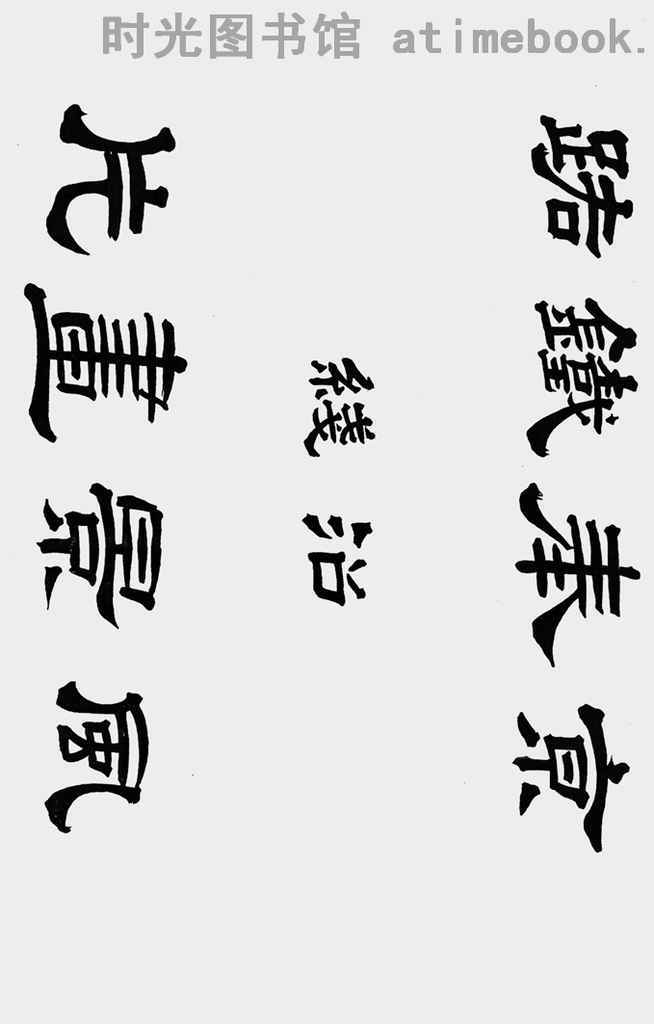 时光图书馆 atimebook.
京奉鐵路
沿綫
風景畫片